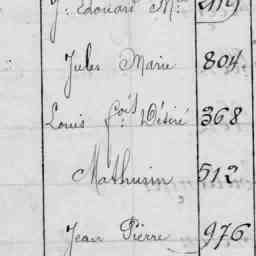 J. Edouard M.
Jules Marie 804.
Louis f.ois Désiré 368
Mathurin 512
Jean Pierre 976